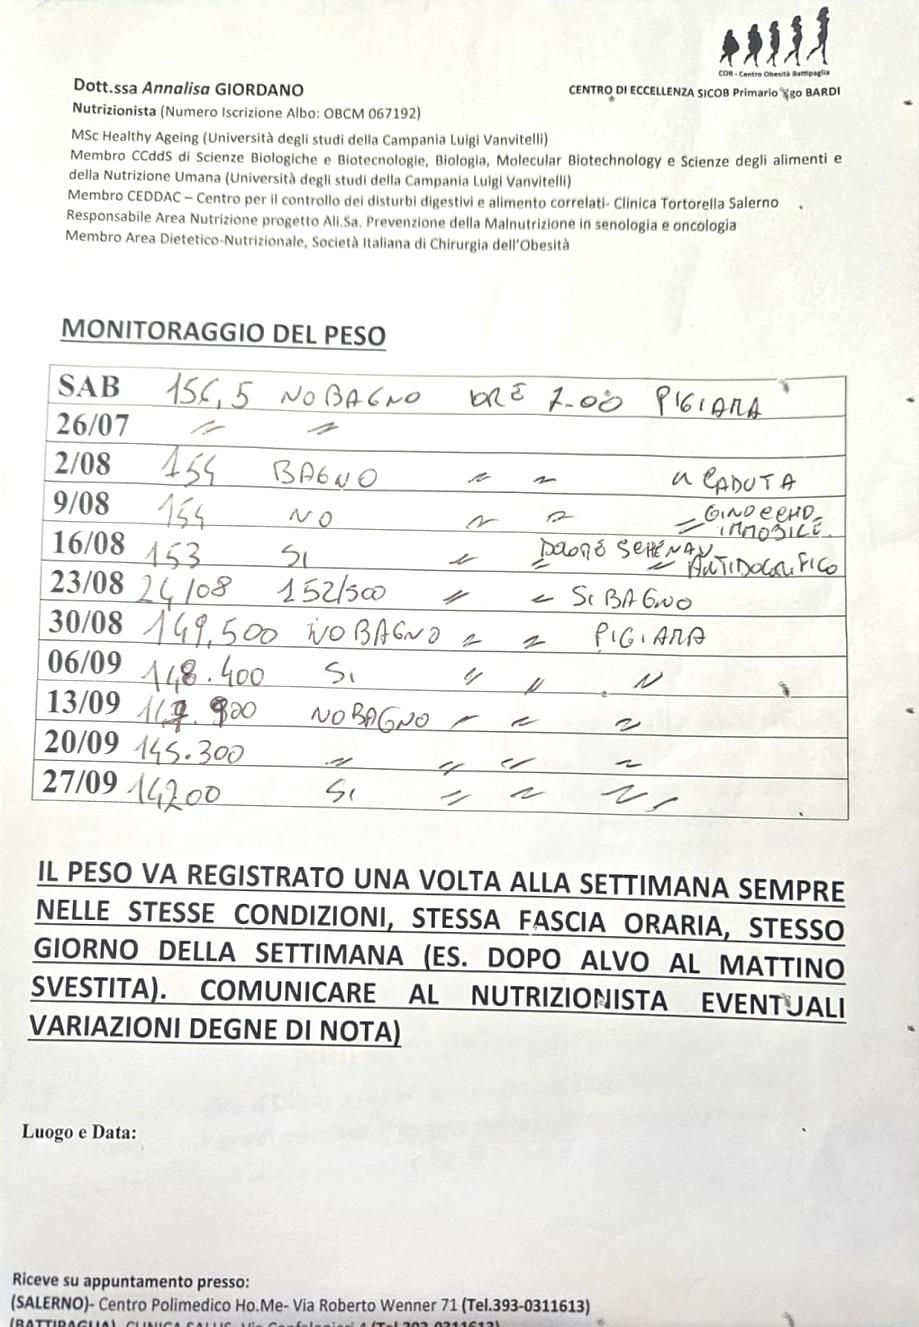 COB - Centro Obesità Battipaglia
CENTRO DI ECCELLENZA SICOB Primario Ugo BARDI
Dott.ssa Annalisa GIORDANO
Nutrizionista (Numero Iscrizione Albo: OBCM 067192)
MSc Healthy Ageing (Università degli studi della Campania Luigi Vanvitelli)
Membro CCddS di Scienze Biologiche e Biotecnologie, Biologia, Molecular Biotechnology e Scienze degli alimenti e
della Nutrizione Umana (Università degli studi della Campania Luigi Vanvitelli)
Membro CEDDAC – Centro per il controllo dei disturbi digestivi e alimento correlati- Clinica Tortorella Salerno
Responsabile Area Nutrizione progetto Ali.Sa. Prevenzione della Malnutrizione in senologia e oncologia
Membro Area Dietetico-Nutrizionale, Società Italiana di Chirurgia dell'Obesità
MONITORAGGIO DEL PESO
SAB 156,5 NO BAGNO ORE 7.00 PIGIAMA
26/07 〃 〃
2/08 154 BAGNO 〃 〃 CADUTA
9/08 154 NO 〃 〃 〃 GINOCCHIO IMMOBILE
16/08 153 SI 〃 〃 DOLORE 〃
23/08 24/08 152/500 〃 〃 SI BAGNO
30/08 149,500 NO BAGNO 〃 〃 PIGIAMA
06/09 148.400 SI 〃 〃 〃
13/09 NO BAGNO 〃 〃 〃
20/09 145.300 〃 〃 〃 〃
27/09 14200 SI 〃 〃 〃
IL PESO VA REGISTRATO UNA VOLTA ALLA SETTIMANA SEMPRE
NELLE STESSE CONDIZIONI, STESSA FASCIA ORARIA, STESSO
GIORNO DELLA SETTIMANA (ES. DOPO ALVO AL MATTINO
SVESTITA). COMUNICARE AL NUTRIZIONISTA EVENTUALI
VARIAZIONI DEGNE DI NOTA)
Luogo e Data:
Riceve su appuntamento presso:
(SALERNO)- Centro Polimedico Ho.Me- Via Roberto Wenner 71 (Tel.393-0311613)
(BATTIPAGLIA) CLINICA SALUS, Via Confalonieri 4 (Tel.393-0311613)